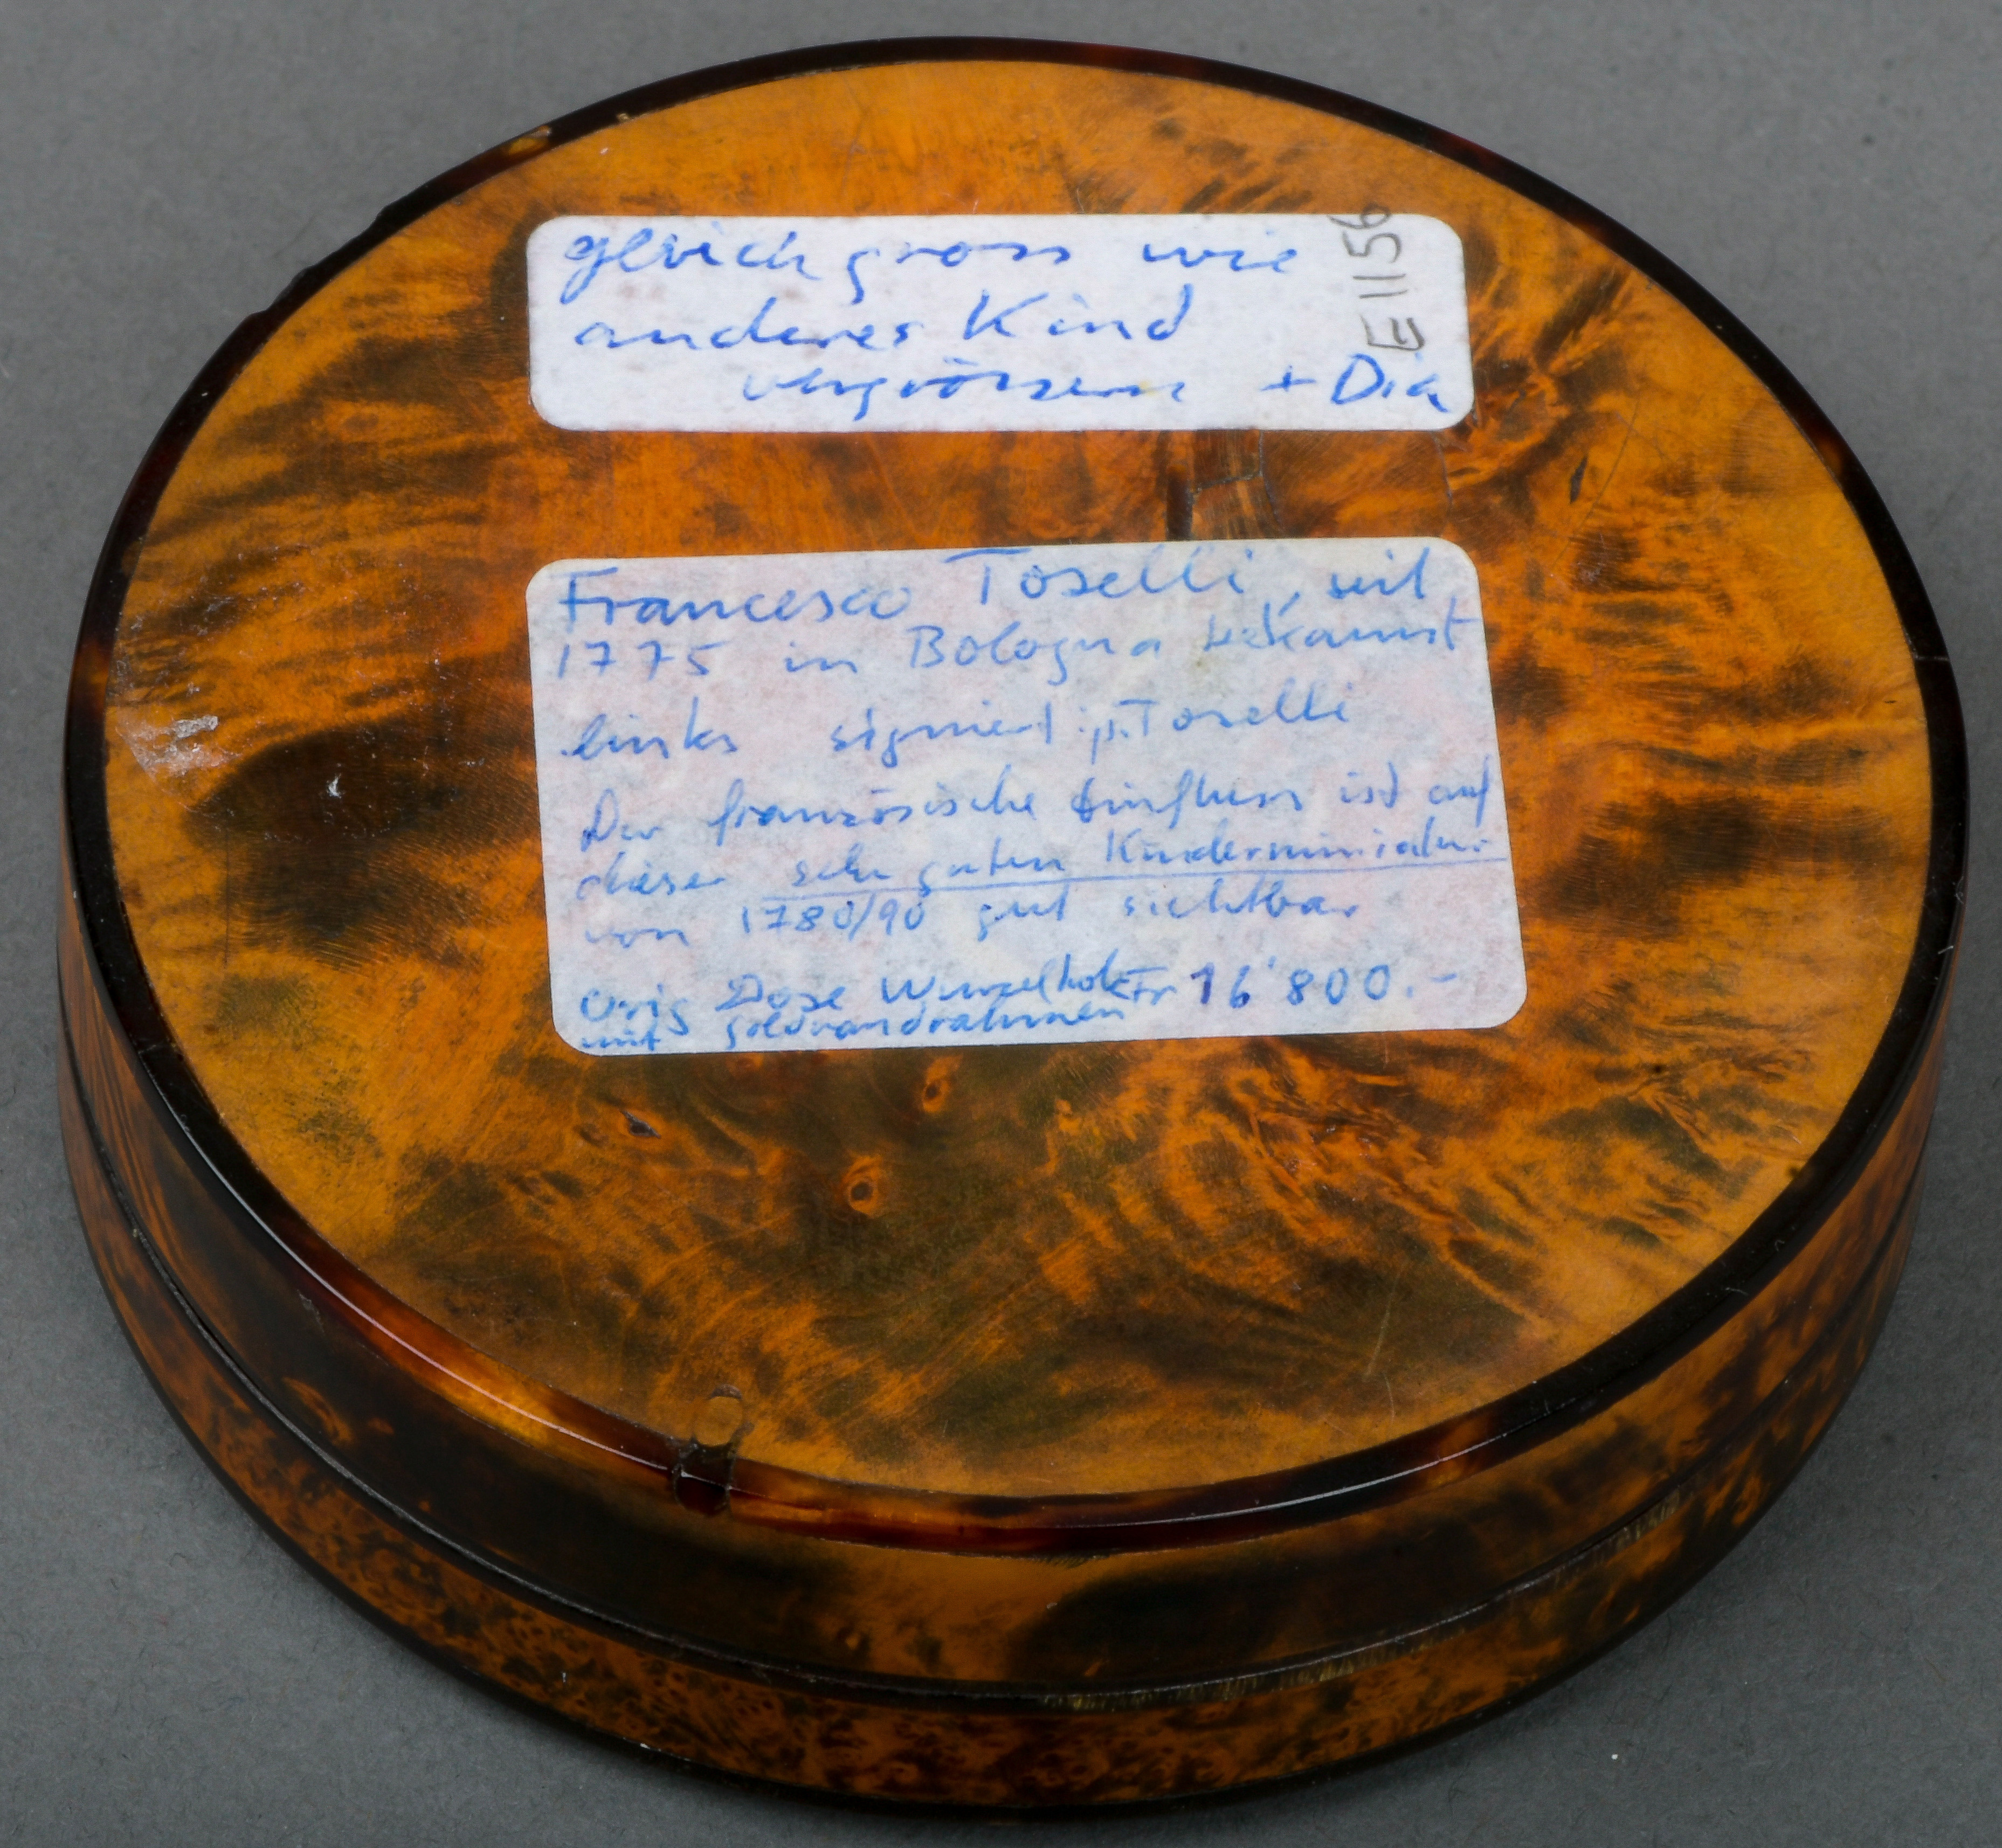 gleich gross wie
anderes Kind
vergrössern + Dia
E1156
Francesco Toselli, seit
1775 in Bologna bekannt
links signiert: p. Toselli
Der französische Einfluss ist auf
dieser sehr guten Kinderminiatur
von 1780/90 gut sichtbar
Orig Dose Wurzelholz Fr 16'800.-
mit Goldrandrahmen